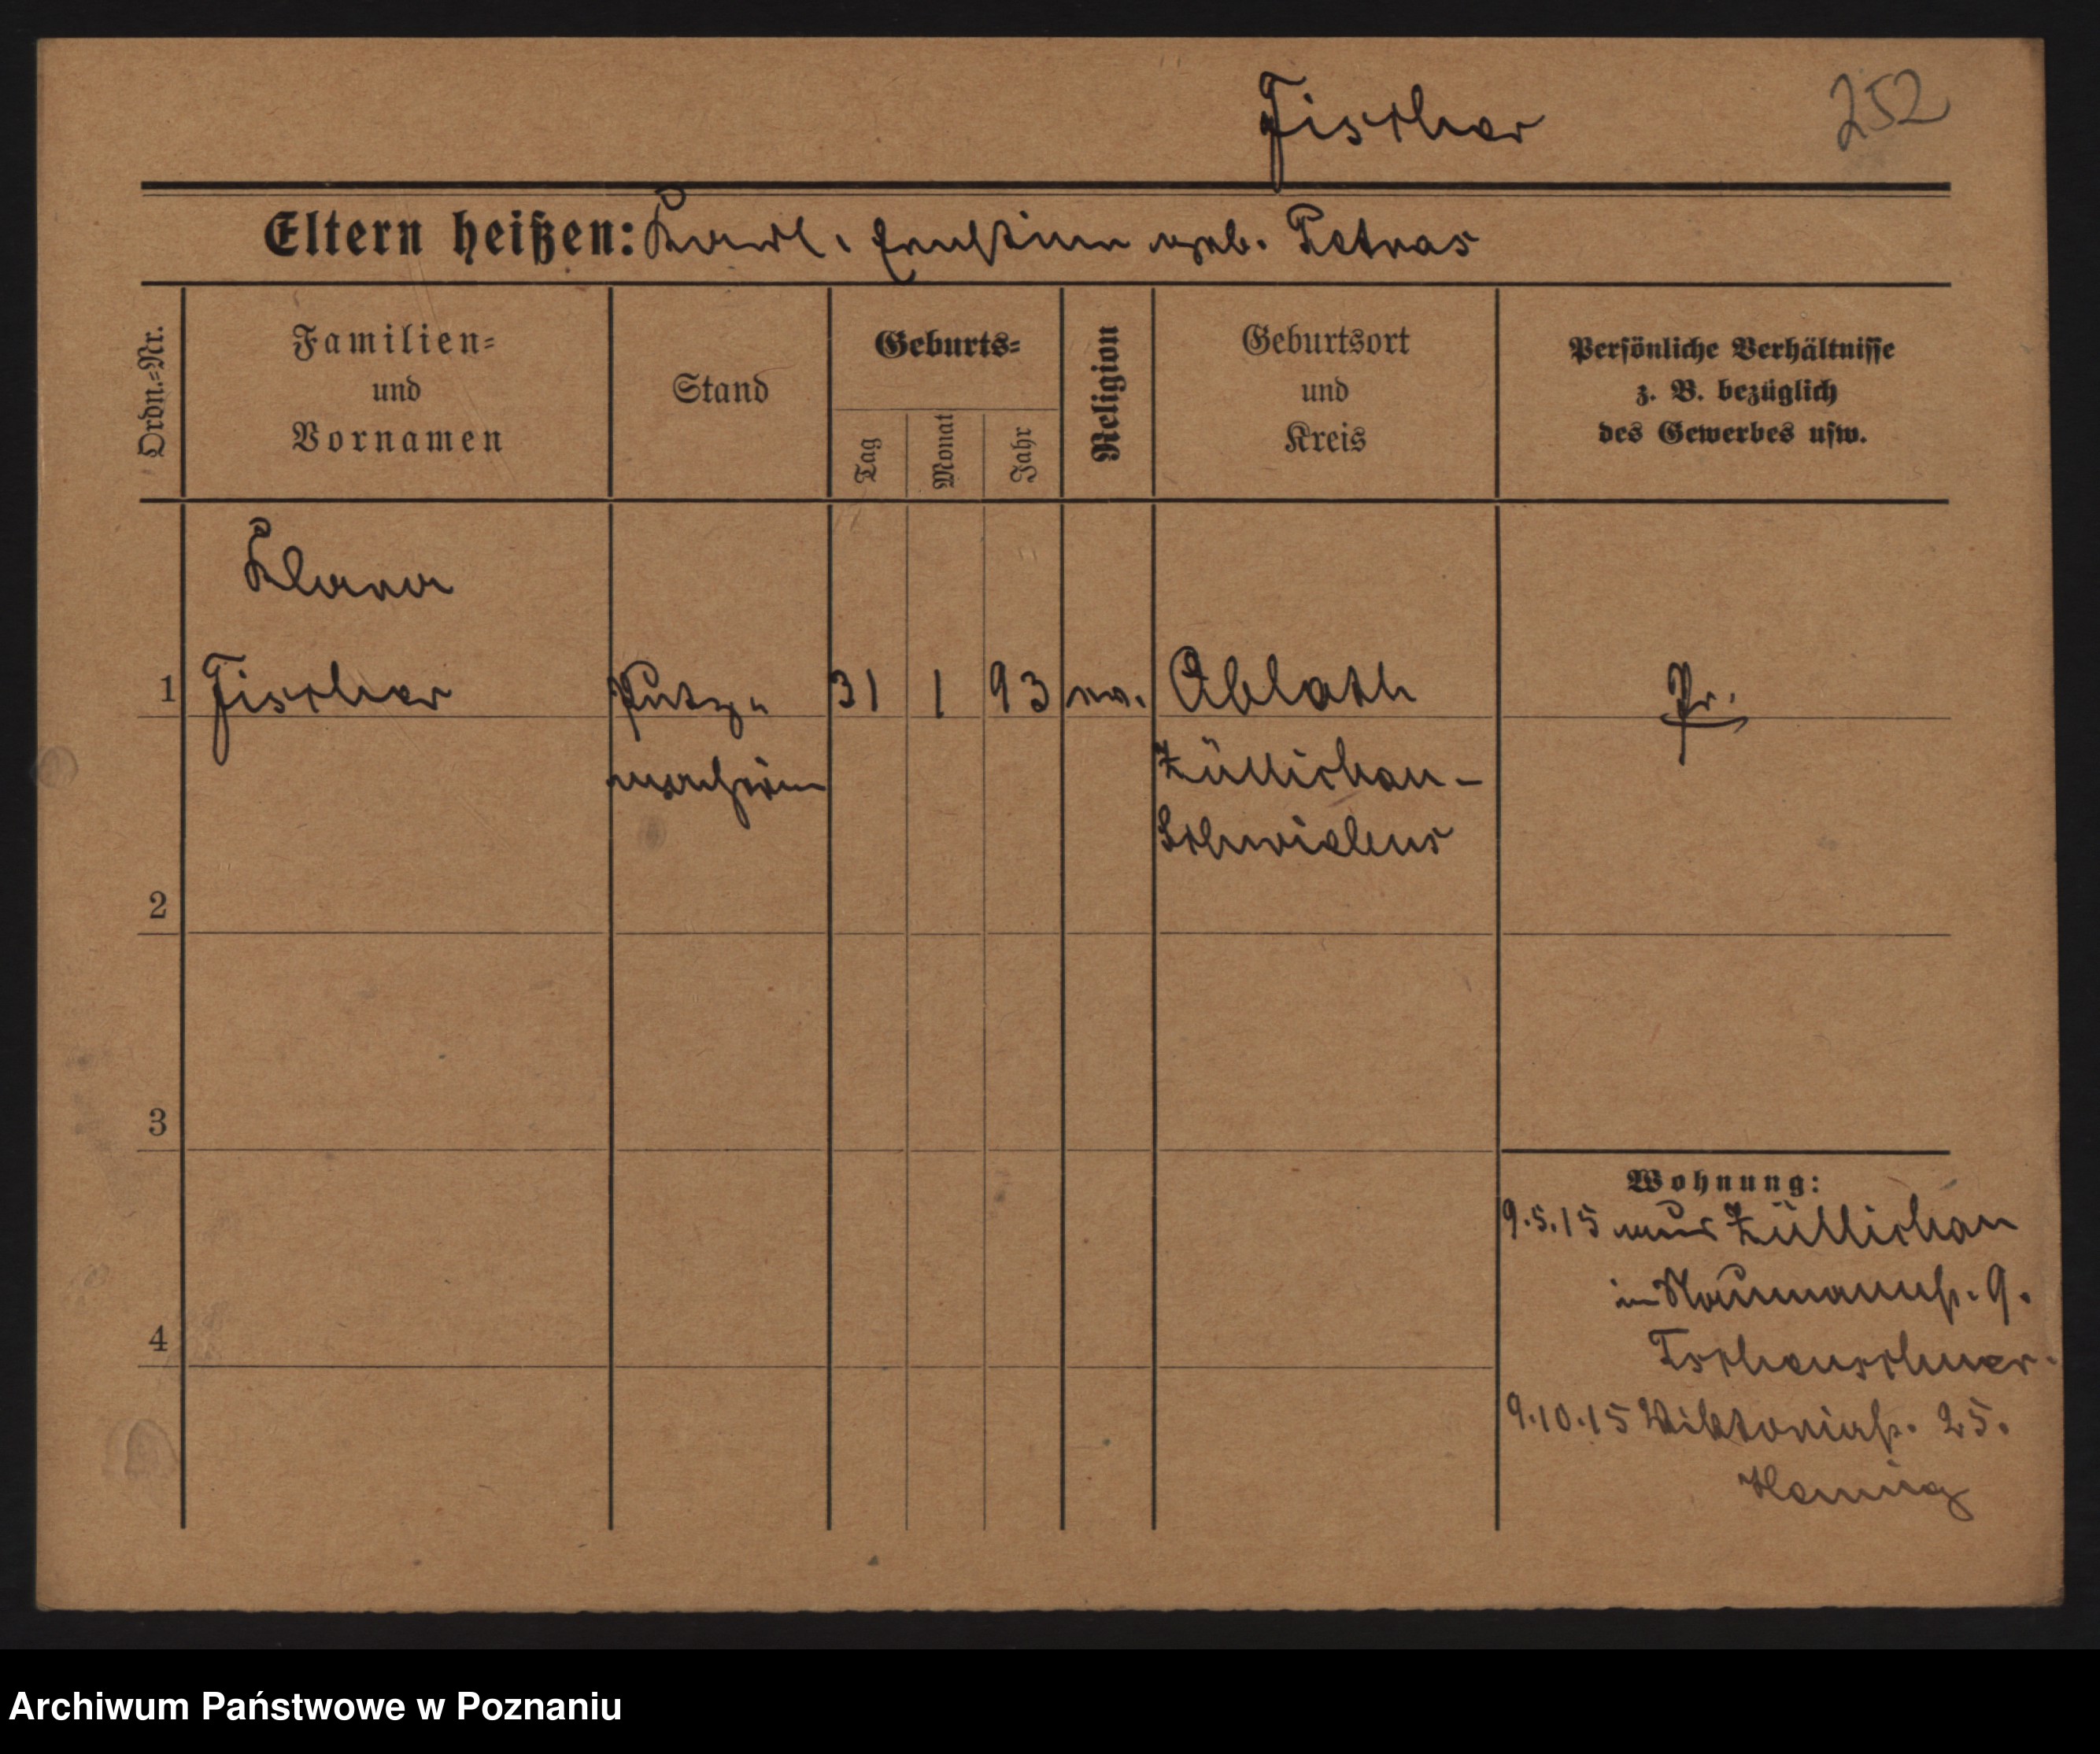 Fischer 252
Eltern heißen: Karl, Ernstine geb. Petras
Ordn.=Nr.
Familien=
und
Vornamen
Stand
Geburts=
Tag
Monat
Jahr
Religion
Geburtsort
und
Kreis
Persönliche Verhältnisse
z. B. bezüglich
des Gewerbes usw.
Klara
1 Fischer Putz= 31 1 93 ev. Ablath Pr.
macherin Züllichau-
Schwiebus
2
3
Wohnung:
9.5.15 aus Züllichau
in Naumannstr. 9.
4
Tscheuschner.
9.10.15 Viktoriastr. 25.
Archiwum Państwowe w Poznaniu